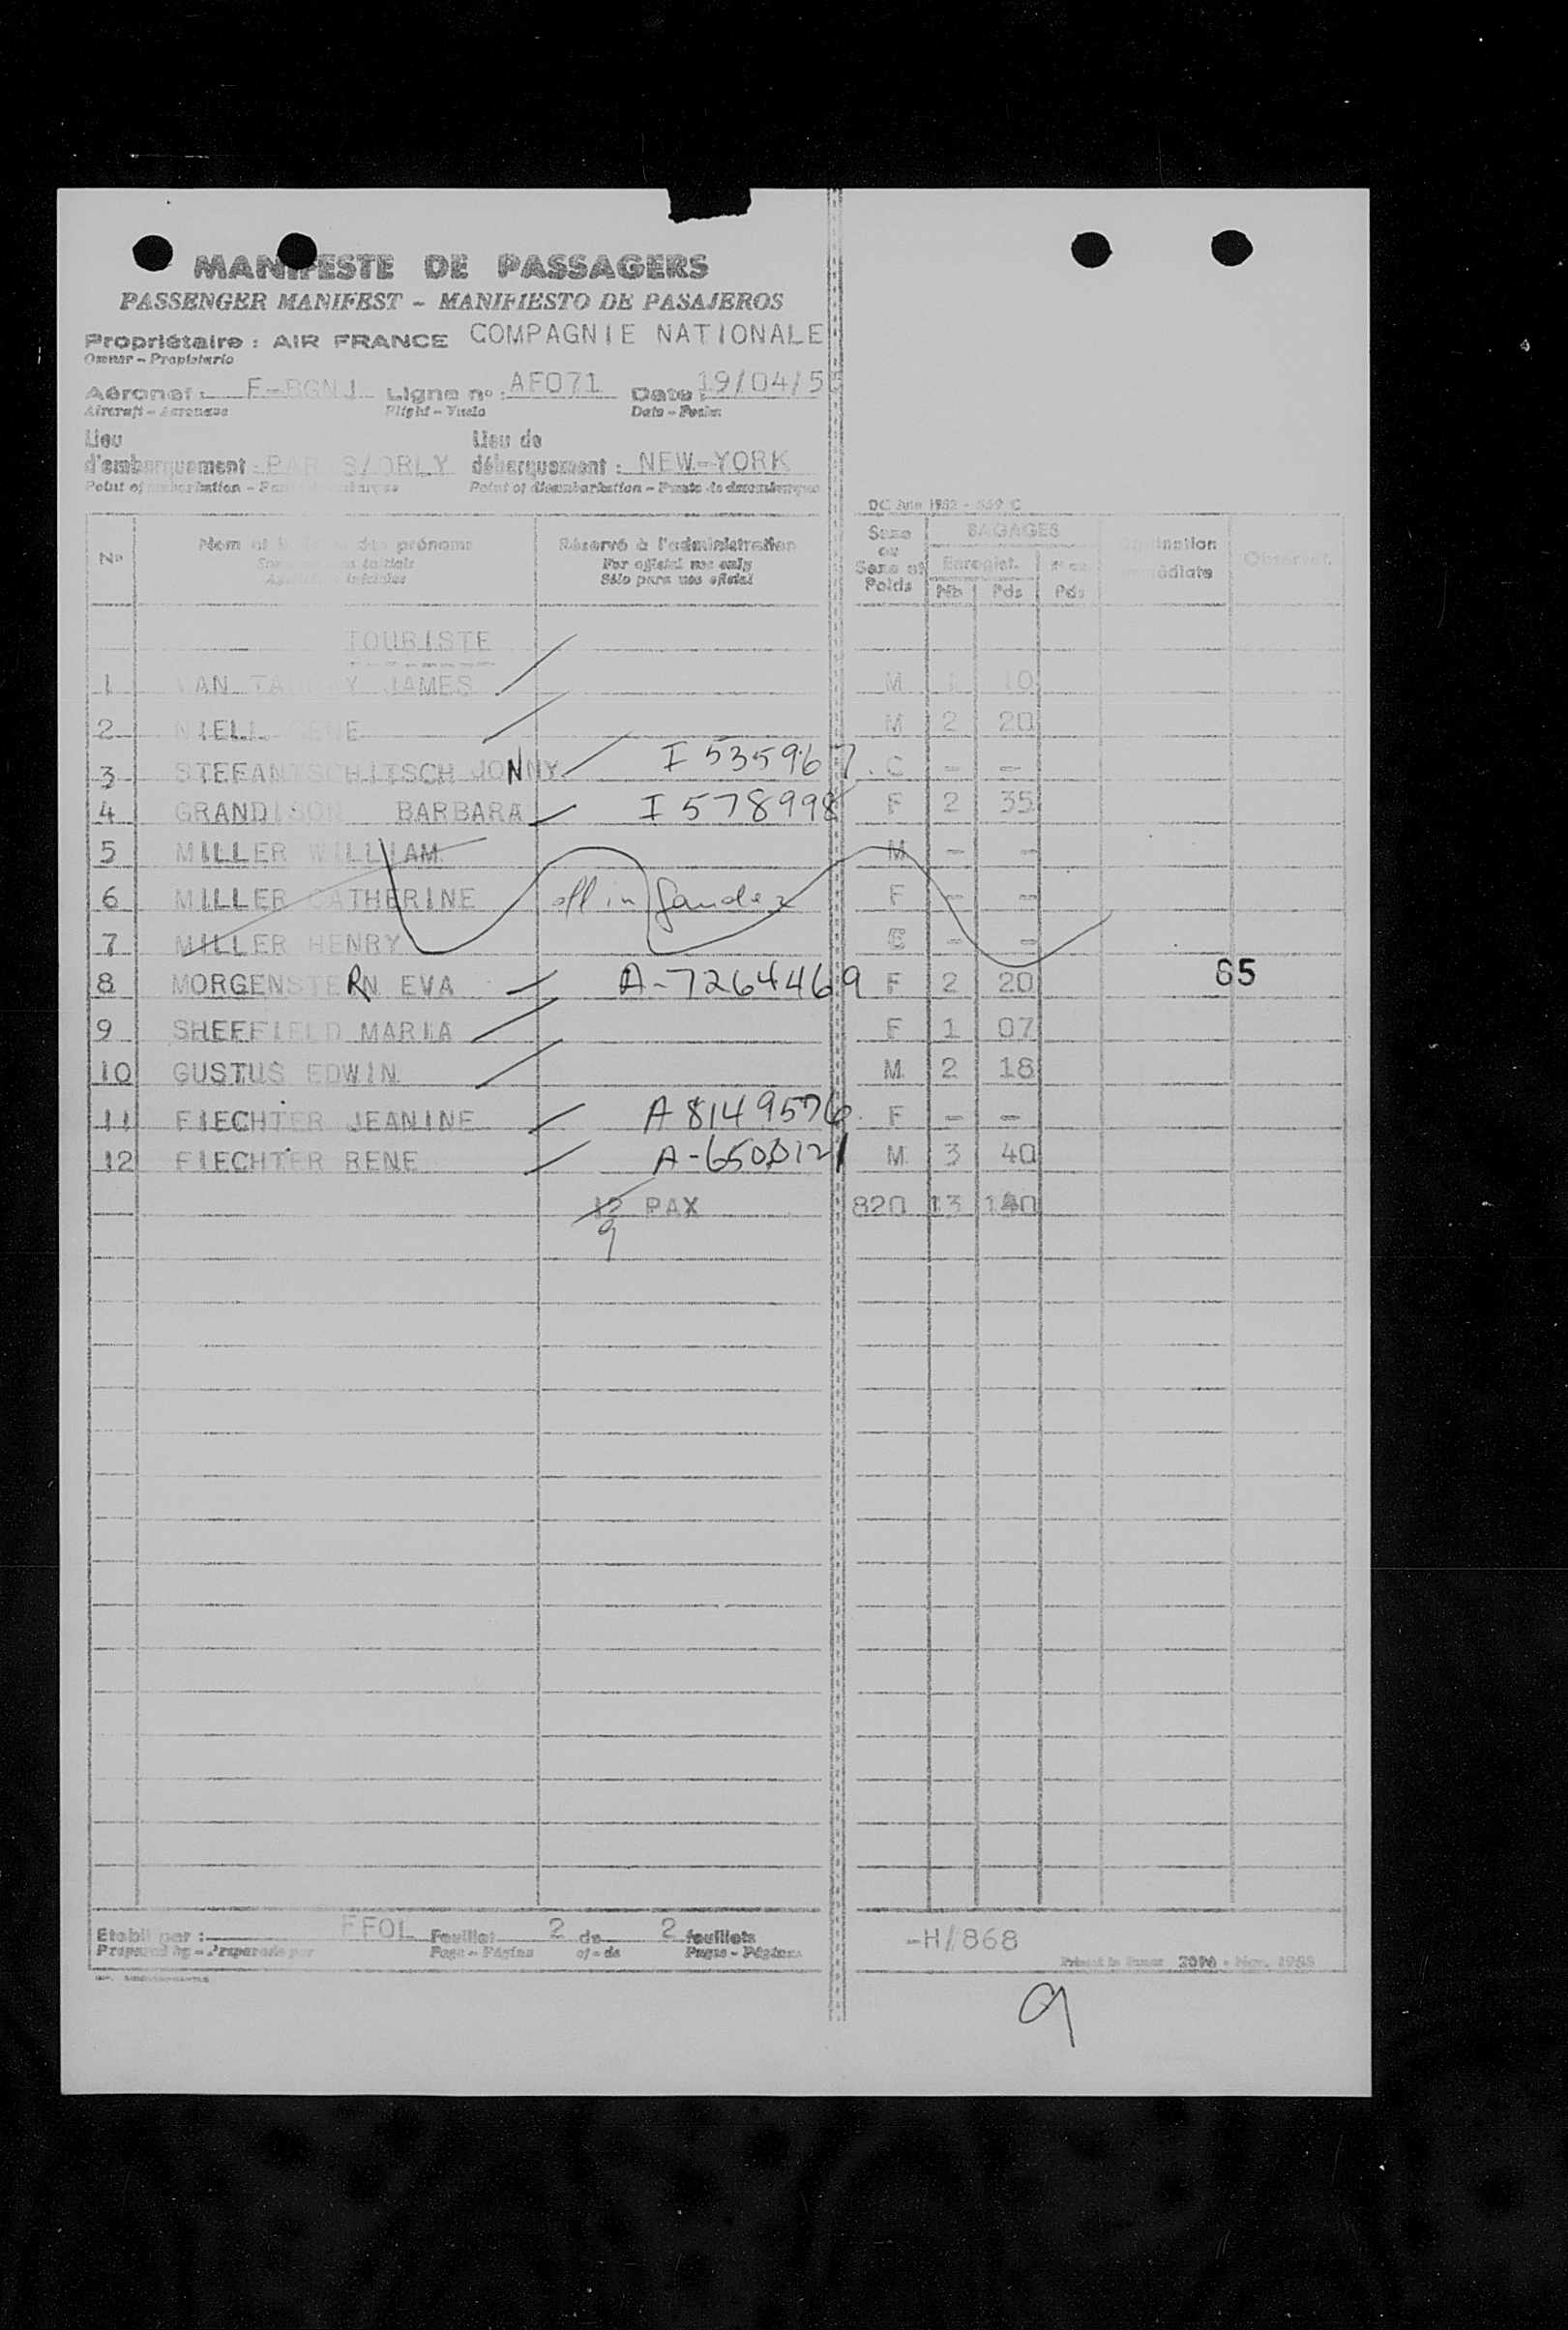 MANIFESTE DE PASSAGERS
PASSENGER MANIFEST - MANIFIESTO DE PASAJEROS
Propriétaire : AIR FRANCE COMPAGNIE NATIONALE
Owner - Propietario
Aéronef : F-BGNJ Ligne n° : AF071 Date : 19/04/5
Aircraft - Aeronave Flight - Vuelo Date - Fecha
Lieu d'embarquement : PARIS/ORLY Lieu de débarquement : NEW-YORK
Point of embarkation - Point of disembarkation - Punto de desembarque
DC Juin 1952 - 559 C
N° Nom et des prénoms Réservé à l'administration Sexe ou Sexe et Poids BAGAGES
For official use only Enregist.
Sólo para uso oficial Nb Pds Pds Observat.
TOURISTE
1 VAN JAMES M 1 10
2 NIELL M 2 20
3 STEFANTSCHITSCH JONNY I 535967 C - -
4 GRANDISON BARBARA I 578998 F 2 35
5 MILLER WILLIAM M - -
6 MILLER CATHERINE off in Gander F - -
7 MILLER HENRY C - -
8 MORGENSTERN EVA A-7264469 F 2 20 65
9 SHEFFIELD MARIA F 1 07
10 GUSTUS EDWIN M 2 18
11 FIECHTER JEANINE A 8149576 F - -
12 FIECHTER RENE A-6500121 M 3 40
12 PAX 820 13
9
Etabli par : FFOL Feuillet 2 de 2 feuillets -H/868
Prepared by - Preparado por Page - Página of - de Pages - Páginas
9